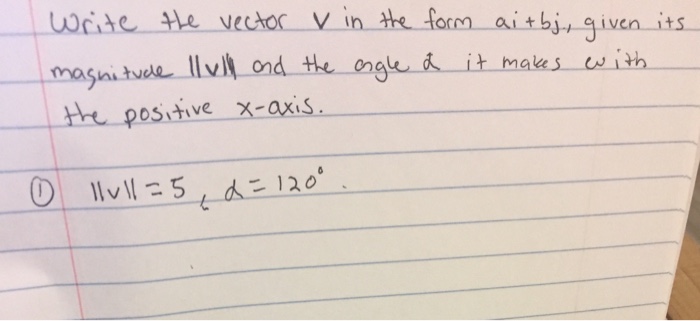 Write the vector v in the form ai+bj, given its
magnitude ||v|| and the angle α it makes with
the positive x-axis.
① ||v|| = 5, α = 120°.